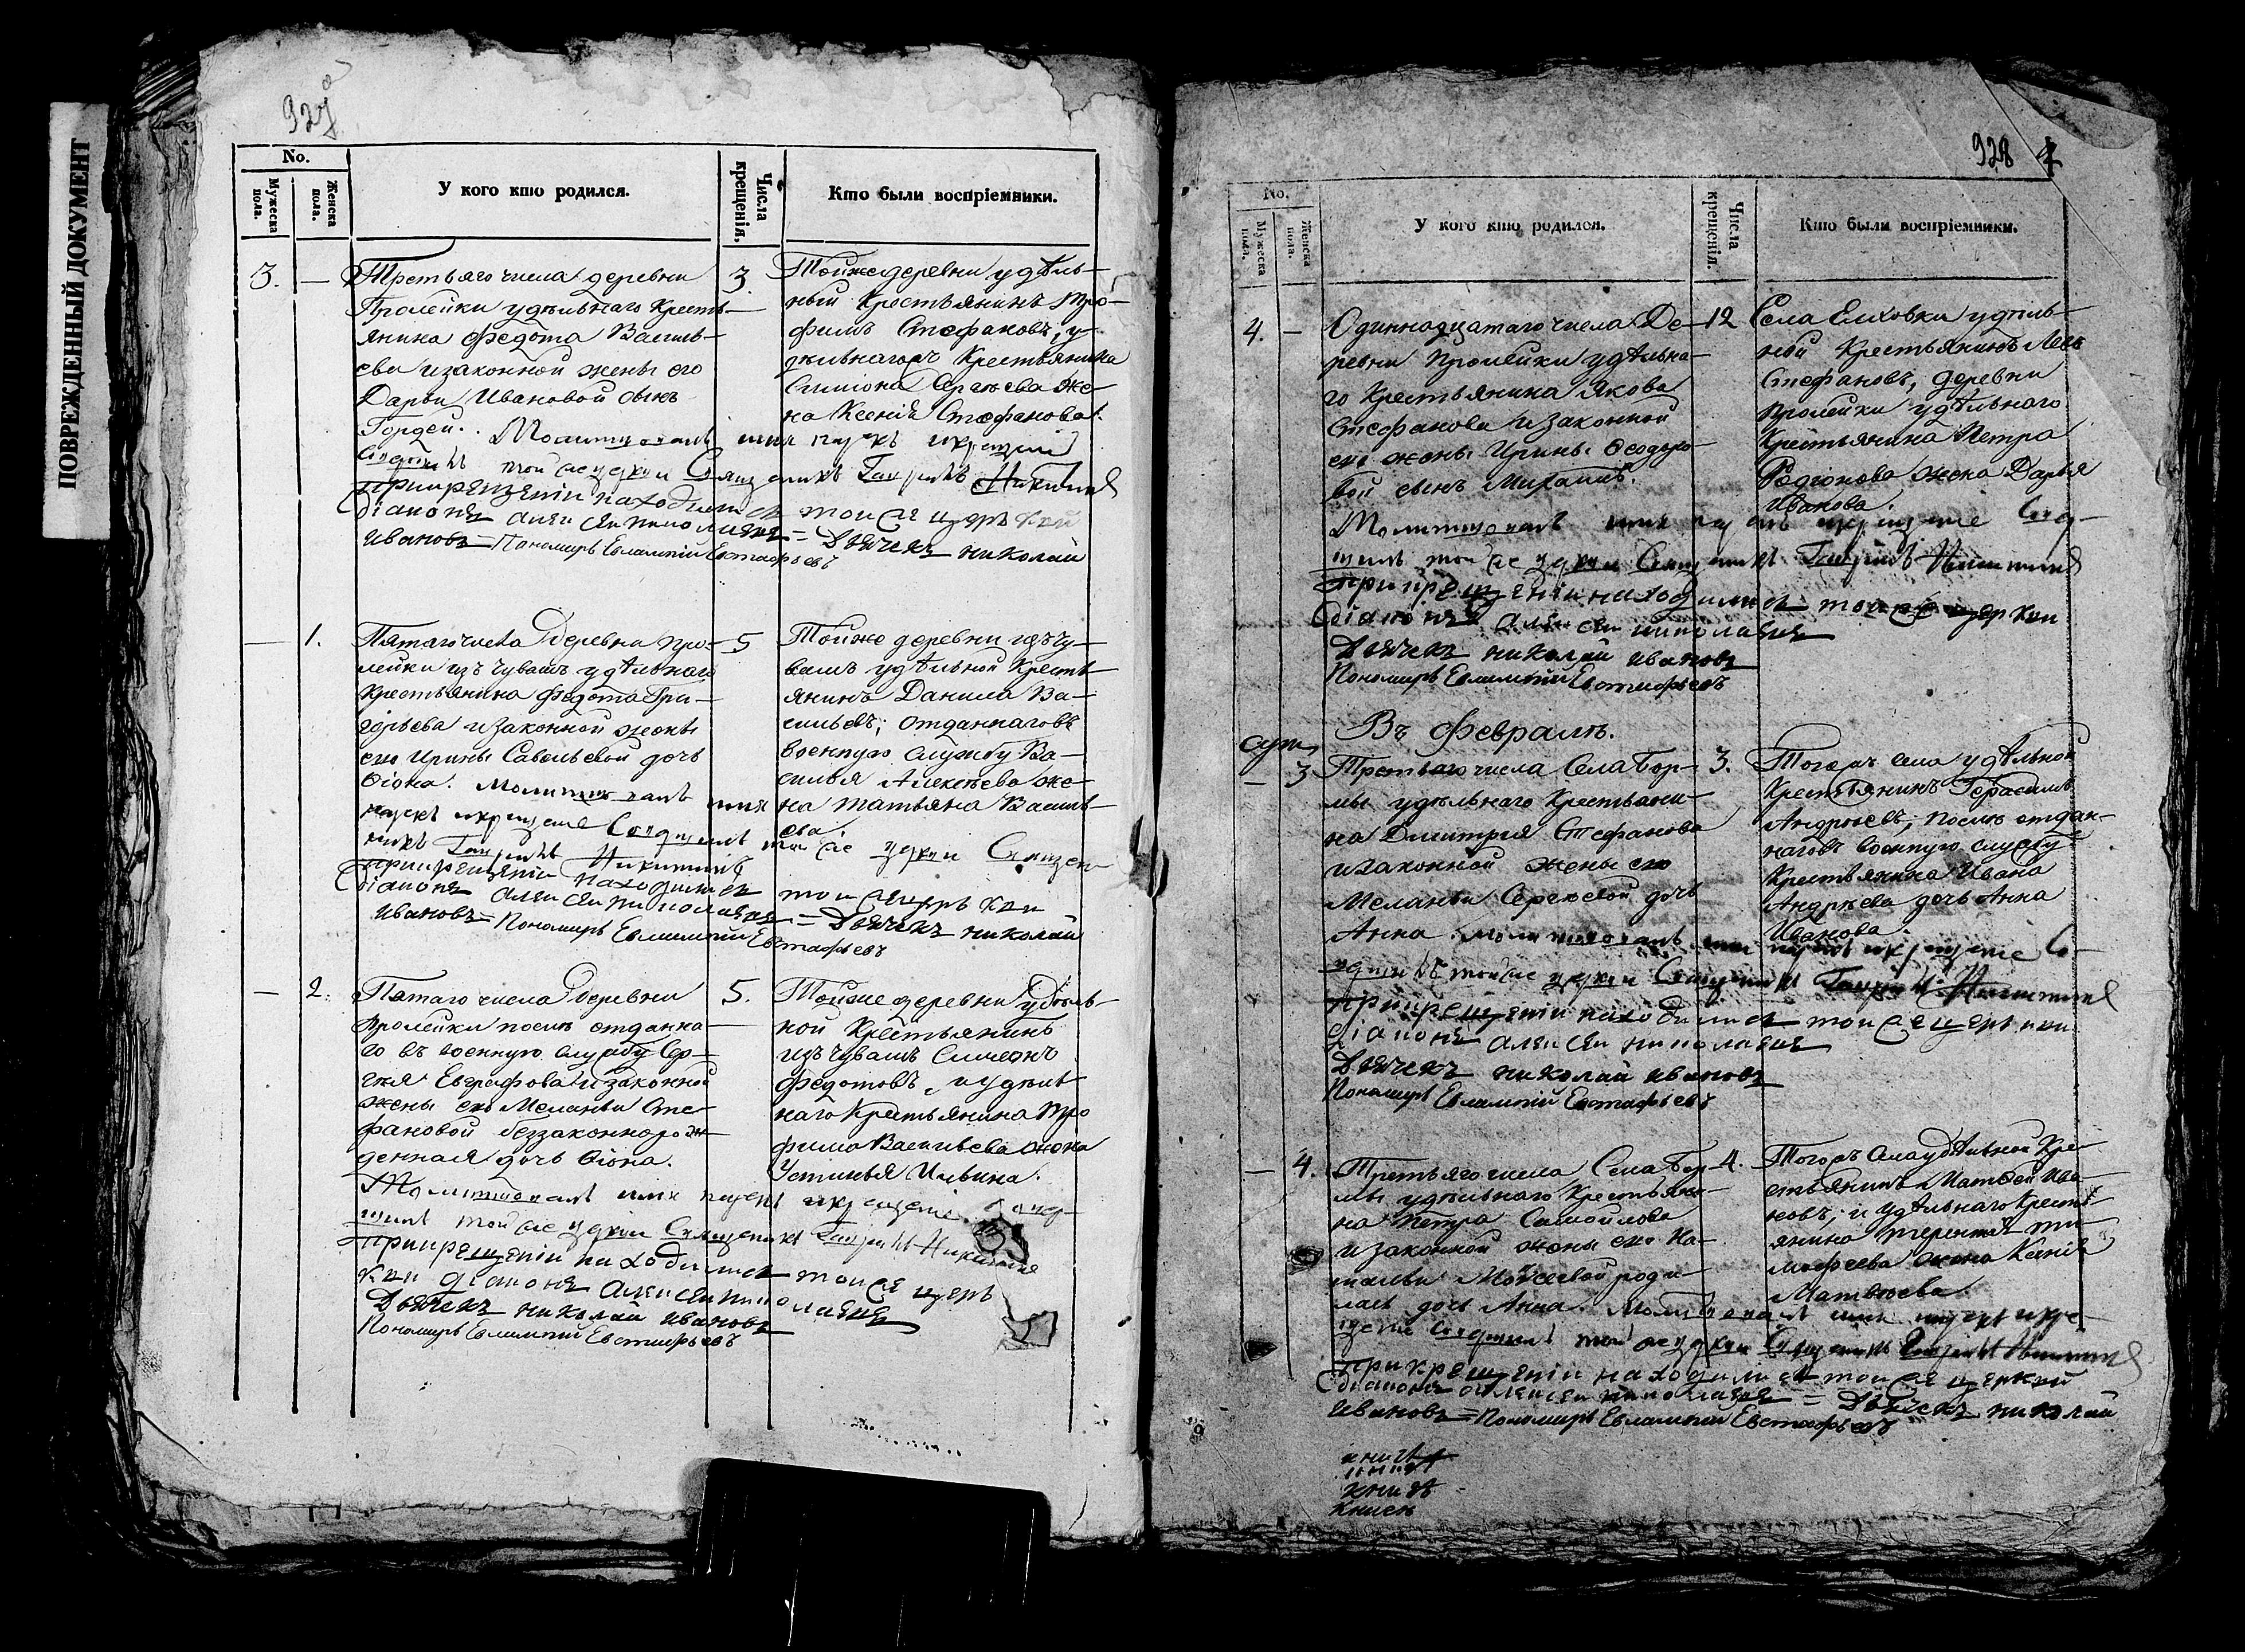 ПОВРЕЖДЕННЫЙ ДОКУМЕНТ
927
No.
Мужеска пола.
Женска пола.
У кого кто родился.
Числа крещенія.
Кто были воспріемники.
3. —
Третьяго числа деревни
Пролейки удѣльнаго кресть-
янина Федота Василь-
ева и законной жены его
Дарьи Ивановой сынъ
Гордей. Молитвовалъ имя нарекъ и крещеніе
той же церкви Священникъ Гавріилъ Никитинъ
При крещеніи находились той же церкви
діаконъ Алексей Николаевъ = Дьячекъ Николай
Ивановъ = Пономарь Евлампій Евстафьевъ
3.
Той же деревни удѣль-
ный крестьянинъ Тро-
фимъ Стефановъ, у-
дѣльнагожъ крестьянина
Симіона Сергѣева же-
на Ксенія Стефанова.
— 1.
Пятаго числа деревни Про-
лейки изъ чувашъ удѣльнаго
крестьянина Федота Гри-
горьева и законной жены
его Ирины Савельевой дочь
Ѳіона. Молитвовалъ имя
нарекъ и крещеніе совершилъ той же церкви Священ-
никъ Гавріилъ Никитинъ
При крещеніи находились той же церкви
діаконъ Алексей Николаевъ = Дьячекъ Николай
Ивановъ = Пономарь Евлампій Евстафьевъ
5
Той же деревни изъ чу-
вашъ удѣльной кресть-
янинъ Данила Ва-
сильевъ; отданнаго въ
военную службу Ва-
силья Алексѣева же-
на Татьяна Василь-
ева.
— 2.
Пятаго числа деревни
Пролейки послѣ отданна-
го въ военную службу Сер-
гея Евграфова и законной
жены его Меланьи Сте-
фановой беззаконнорож-
денная дочь Ѳіона.
Молитвовалъ имя нарекъ и крещеніе
той же церкви Священникъ Гавріилъ Никитинъ
При крещеніи находились той же церкви
діаконъ Алексей Николаевъ
Дьячекъ Николай Ивановъ
Пономарь Евлампій Евстафьевъ
5.
Той же деревни удѣль-
ной крестьянинъ
изъ чувашъ Симеонъ
Федотовъ, и удѣль
наго крестьянина Тро
фима Васильева жена
Устинья Ильина.
928
No.
Мужеска пола.
Женска пола.
У кого кто родился.
Числа крещенія.
Кто были воспріемники.
4. —
Одиннадцатаго числа де-
ревни Пролейки удѣльна-
го крестьянина Якова
Стефанова и законной
его жены Ирины Ѳеодоро-
вой сынъ Михаилъ.
Молитвовалъ имя нарекъ и крещеніе
той же церкви Священникъ Гавріилъ Никитинъ
При крещеніи находились той же церкви
діаконъ Алексей Николаевъ
Дьячекъ Николай Ивановъ
Пономарь Евлампій Евстафьевъ
12
Села Елховки удѣль-
ной крестьянинъ Левъ
Стефановъ, деревни
Пролейки удѣльнаго
крестьянина Петра
Родіонова жена Дарья
Иванова.
Въ Февралѣ.
— 3
Третьяго числа села Бор-
мы удѣльнаго крестьяни-
на Димитрія Стефанова
и законной жены его
Меланьи Сергѣевой дочь
Анна. Молитвовалъ имя нарекъ и крещеніе
той же церкви Священникъ Гавріилъ Никитинъ
При крещеніи находились той же церкви
діаконъ Алексей Николаевъ
Дьячекъ Николай Ивановъ
Пономарь Евлампій Евстафьевъ
3.
Тогожъ села удѣльной
крестьянинъ Герасимъ
Андреевъ; послѣ отдан-
наго въ военную службу
крестьянина Ивана
Андрѣева дочь Анна
Иванова.
— 4.
Третьяго числа села Бор-
мы удѣльнаго крестьяни-
на Петра Самойлова
и законной жены его На-
тальи Моѵсеевой роди-
лась дочь Анна. Молитвовалъ имя нарекъ и кре-
щеніе совершилъ той же церкви Священникъ Гавріилъ Никитинъ
При крещеніи находились той же церкви
діаконъ Алексей Николаевъ = Дьячекъ Николай
Ивановъ = Пономарь Евлампій Евстафьевъ
4.
Тогожъ села удѣльной кре-
стьянинъ Матвѣй Ива-
новъ; и удѣльнаго кресть-
янина Терентья Ти-
мофеева жена Ксенія
Матвѣева.